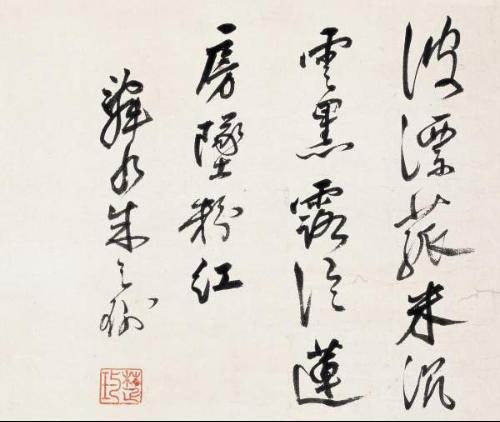 波漂菰米沉
雲黑露冷蓮
房墜粉紅
舜水朱之瑜